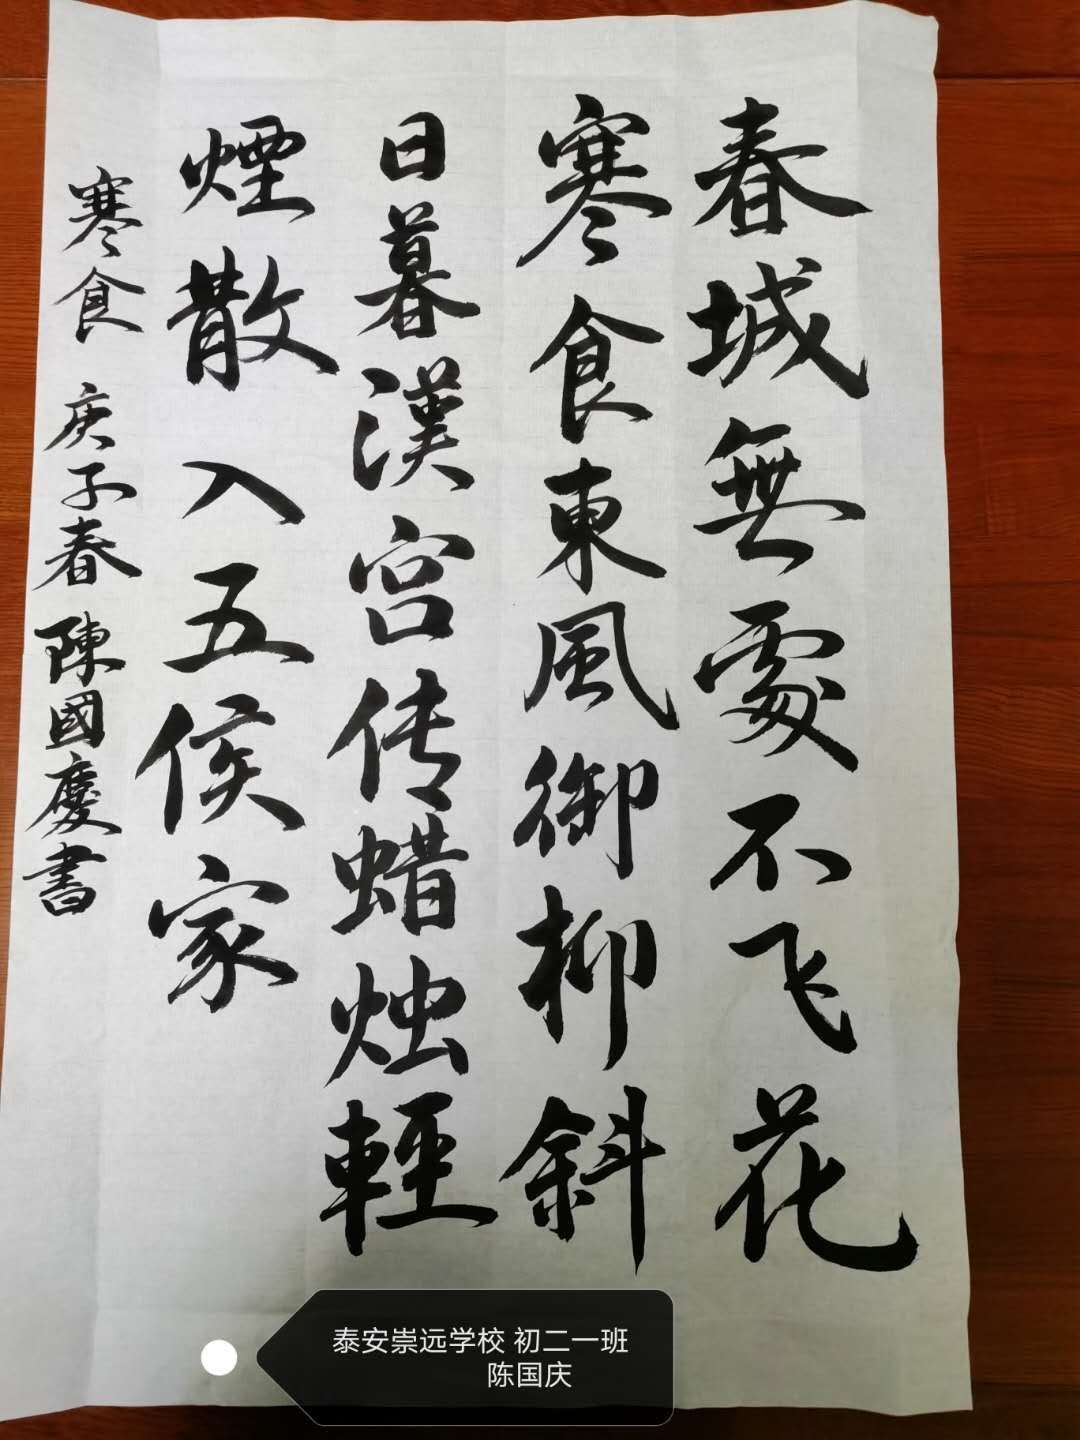 春城無處不飞花
寒食東風御柳斜
日暮漢宫传蜡烛輕
煙散入五侯家
寒食 庚子春 陳國慶書
泰安崇远学校 初二一班
陈国庆